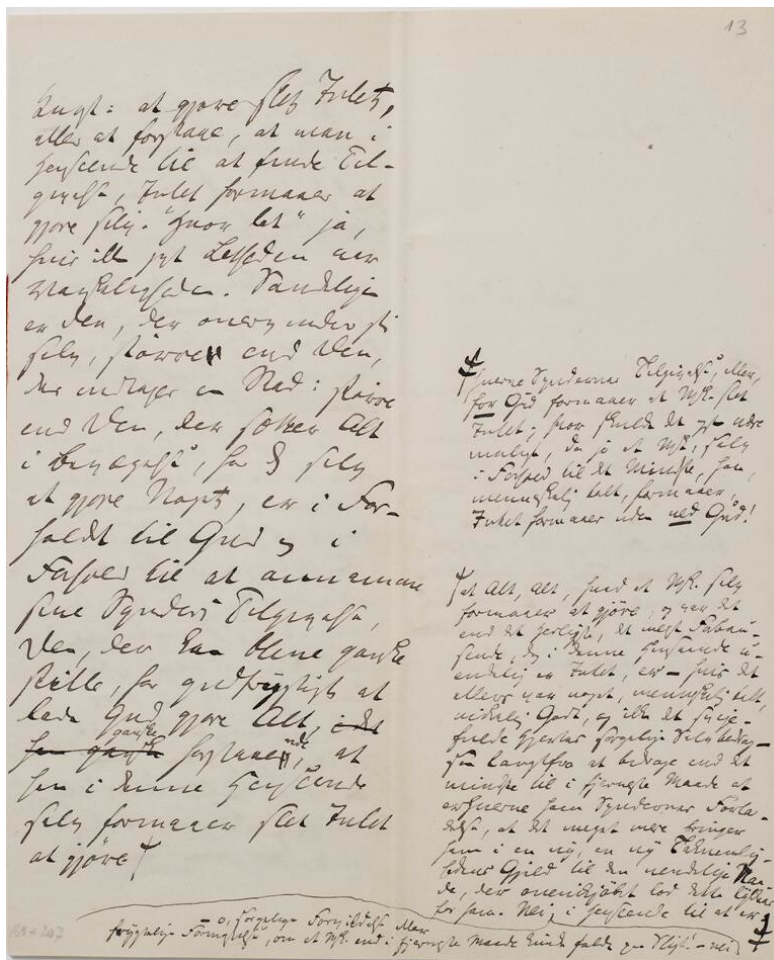 13
Kunst: at gjøre slet Intet,
eller at forstaae, at man i
Henseende til at finde Til-
givelse, Intet formaaer at
gjøre selv. "Hvor let" ja,
hvis ikke just Letheden var
Vanskeligheden. Sandelig
er den, der overvinder sig
selv, større end Den,
der indtager en Stad: større
end Den, der sætter Alt
i Bevægelse, for selv
at gjøre Noget, er i For-
holdt til Gud og i
Forhold til at annamme
sine Synders Tilgivelse,
Den, der kan blive ganske
stille, for gudfrygtigt at
lade Gud gjøre Alt, i det
ganske
han ganske forstaaende, at
han i denne Henseende
selv formaaer slet Intet
at gjøre
hverve Syndernes Tilgivelse, eller,
for Gud formaaer et Msk. slet
Intet; hvor skulde det og være
muligt, da jo et Msk., selv
i Forhold til det Mindste, han,
menneskelig talt, formaaer,
Intet formaaer uden ved Gud!
at Alt, Alt, hvad et Msk. selv
formaaer at gjøre, og var det
end det Herligste, det meest Forbau-
sende, dog i denne Henseende u-
endelig er Intet, er – hvis det
ellers var noget, menneskelig talt,
virkelig Godt, og ikke det svige-
fulde Hjertes sørgelige Selvbedrag –
saa langtfra at bidrage end det
mindste til i fjerneste Maade at
erhverve ham Syndernes Forla-
delse, at det meget mere bringer
ham i en ny, en ny Taknemlig-
hedens Gjeld til den uendelige Naa-
de, der ovenikjøbet lod dette lykkes
for ham. Nei, i Henseende til at er
o, sørgelige Forvildelse eller
frygtelige Formastelse, om et Msk. end i fjerneste Maade kunde falde paa Sligt! – nei